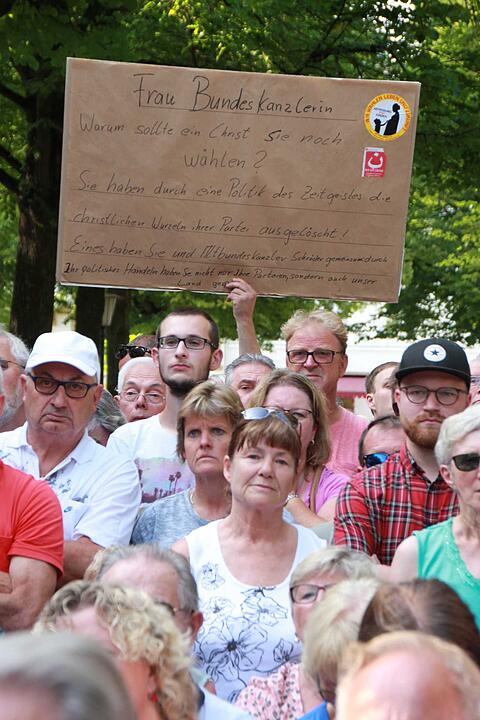 Frau Bundeskanzlerin
Warum sollte ein Christ Sie noch
wählen?
Sie haben durch eine Politik des Zeitgeistes die
christlichen Wurzeln ihrer Partei ausgelöscht!
Eines haben Sie und Altbundeskanzler Schröder gemeinsam: durch
Ihr politisches Handeln haben Sie nicht nur Ihre Parteien, sondern auch unser
Land